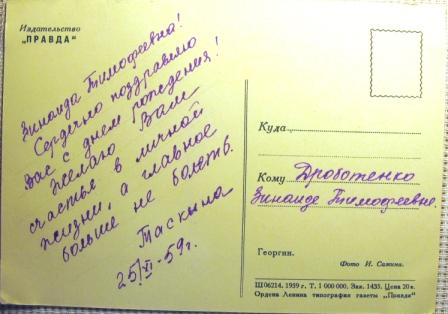 Издательство
„ПРАВДА"
Зинаида Тимофеевна!
Сердечно поздравляю
Вас с днем рождения!
Желаю Вам
счастья в личной
жизни, а главное
больше не болеть.
Таскина
25/VI-59г.
Куда
Кому Дроботенко
Зинаиде Тимофеевне.
Георгин.
Фото И. Сажина.
Ш 06214. 1959 г. Т. 1 000 000. Зак. 1435. Цена 20 к.
Ордена Ленина типография газеты „Правда"